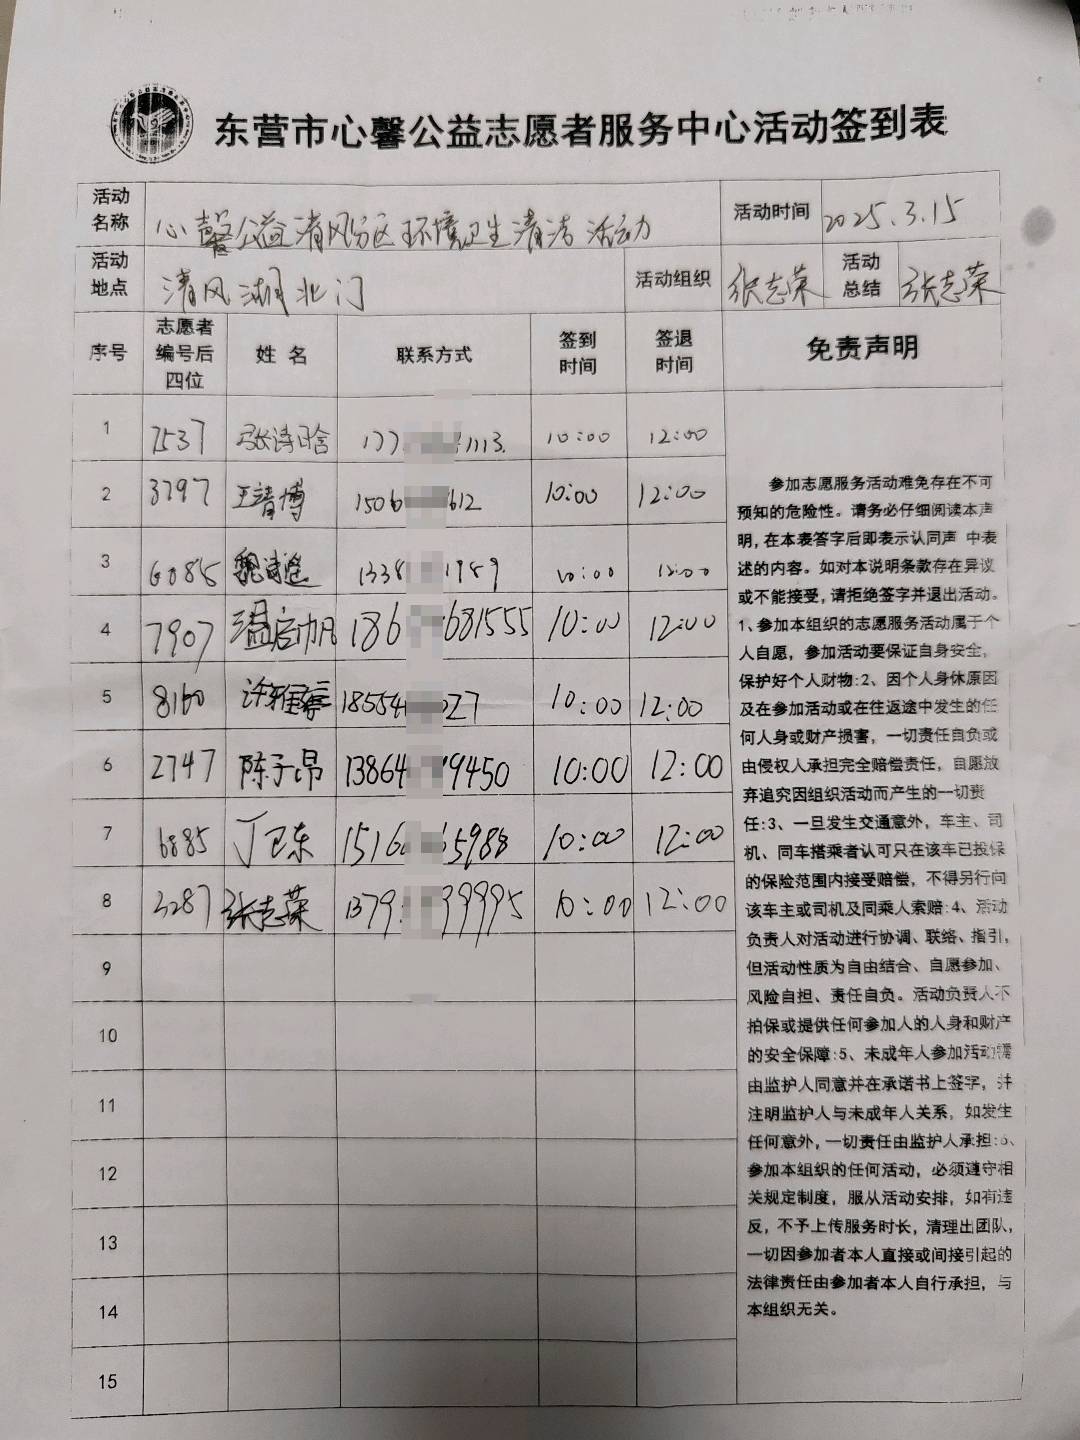 东营市心馨公益志愿者服务中心活动签到表
活动名称 心馨公益清风分区环境卫生清洁活动 活动时间 2025.3.15
活动地点 清风湖北门 活动组织 张志荣 活动总结 张志荣
序号 志愿者编号后四位 姓名 联系方式 签到时间 签退时间 免责声明
1 7537 张诗晗 177 1113. 10:00 12:00
2 3797 王靖博 1506 612 10:00 12:00
3 6085 魏 1338 1989 10:00 12:00
4 7907 温启帆 186 681555 10:00 12:00
5 8160 许雅 18554 027 10:00 12:00
6 2747 陈子昂 13864 9450 10:00 12:00
7 6885 丁卫东 1516 5988 10:00 12:00
8 3287 张志荣 1379 99995 10:00 12:00
9
10
11
12
13
14
15
参加志愿服务活动难免存在不可
预知的危险性。请务必仔细阅读本声
明,在本表签字后即表示认同声 中表
述的内容。如对本说明条款存在异议
或不能接受,请拒绝签字并退出活动。
1、参加本组织的志愿服务活动属于个
人自愿，参加活动要保证自身安全,
保护好个人财物:2、因个人身体原因
及在参加活动或在往返途中发生的任
何人身或财产损害，一切责任自负或
由侵权人承担完全赔偿责任，自愿放
弃追究因组织活动而产生的一切责
任:3、一旦发生交通意外，车主、司
机、同车搭乘者认可只在该车已投保
的保险范围内接受赔偿，不得另行向
该车主或司机及同乘人索赔:4、活动
负责人对活动进行协调、联络、指引,
但活动性质为自由结合、自愿参加、
风险自担、责任自负。活动负责人不
担保或提供任何参加人的人身和财产
的安全保障:5、未成年人参加活动需
由监护人同意并在承诺书上签字，并
注明监护人与未成年人关系，如发生
任何意外,一切责任由监护人承担:6、
参加本组织的任何活动，必须遵守相
关规定制度，服从活动安排，如有违
反，不予上传服务时长，清理出团队,
一切因参加者本人直接或间接引起的
法律责任由参加者本人自行承担，与
本组织无关。